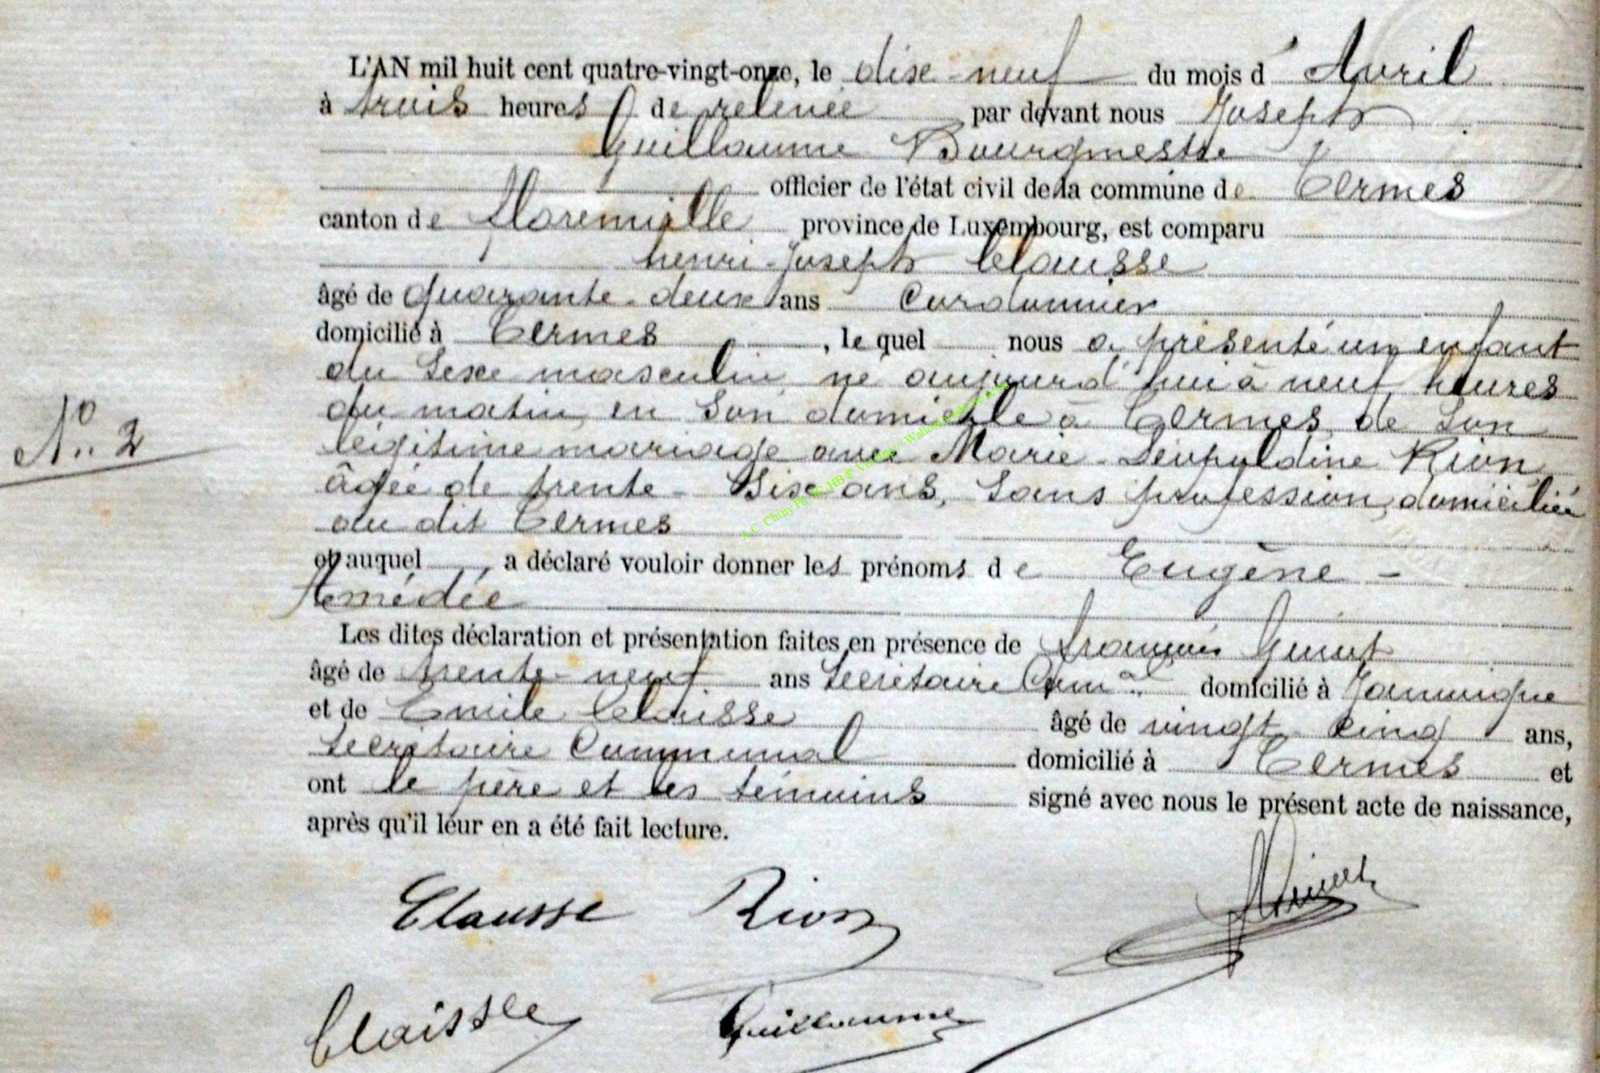 L'AN mil huit cent quatre-vingt-onze, le dixe-neuf du mois d'Avril
à trois heures de relevée par devant nous Joseph
Guillaume Bourgmestre
officier de l'état civil de la commune de Termes
canton de Florenville province de Luxembourg, est comparu
henri-Joseph Clausse
âgé de quarante-deux ans Cordonnier
domicilié à Termes, le quel nous a présenté un enfant
du Sexe masculin né aujourd'hui à neuf heures
N° 2
du matin en Son domicile à Termes, de Son
légitime mariage avec Marie-Léopoldine Rion
âgée de trente-Six ans, Sans profession, domiciliée
au dit Termes
et auquel, a déclaré vouloir donner les prénoms de Eugène-
Amédée
Les dites déclaration et présentation faites en présence de François
âgé de trente-neuf ans Secrétaire Com.al domicilié à Jamoigne
et de Emile Claisse âgé de vingt-cinq ans,
Secrétaire Communal domicilié à Termes et
ont le père et les témoins signé avec nous le présent acte de naissance,
après qu'il leur en a été fait lecture.
Clausse Rion
Claisse Guillaume